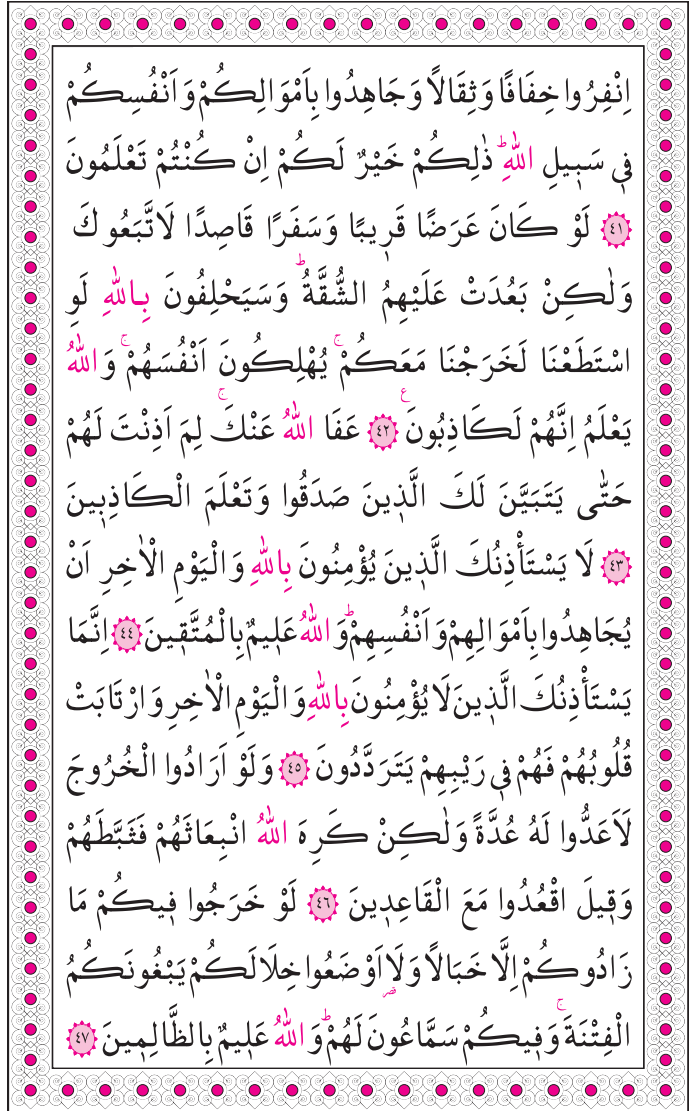 اِنْفِرُوا خِفَافًا وَثِقَالًا وَجَاهِدُوا بِاَمْوَالِكُمْ وَاَنْفُسِكُمْ
ف۪ي سَب۪يلِ اللّٰهِۜ ذٰلِكُمْ خَيْرٌ لَكُمْ اِنْ كُنْتُمْ تَعْلَمُونَ
﴿٤١﴾ لَوْ كَانَ عَرَضًا قَر۪يبًا وَسَفَرًا قَاصِدًا لَاتَّبَعُوكَ
وَلٰكِنْ بَعُدَتْ عَلَيْهِمُ الشُّقَّةُۜ وَسَيَحْلِفُونَ بِاللّٰهِ لَوِ
اسْتَطَعْنَا لَخَرَجْنَا مَعَكُمْۚ يُهْلِكُونَ اَنْفُسَهُمْۚ وَاللّٰهُ
يَعْلَمُ اِنَّهُمْ لَكَاذِبُونَ۟ ﴿٤٢﴾ عَفَا اللّٰهُ عَنْكَۚ لِمَ اَذِنْتَ لَهُمْ
حَتّٰى يَتَبَيَّنَ لَكَ الَّذ۪ينَ صَدَقُوا وَتَعْلَمَ الْكَاذِب۪ينَ
﴿٤٣﴾ لَا يَسْتَأْذِنُكَ الَّذ۪ينَ يُؤْمِنُونَ بِاللّٰهِ وَالْيَوْمِ الْاٰخِرِ اَنْ
يُجَاهِدُوا بِاَمْوَالِهِمْ وَاَنْفُسِهِمْۜ وَاللّٰهُ عَل۪يمٌ بِالْمُتَّق۪ينَ ﴿٤٤﴾ اِنَّمَا
يَسْتَأْذِنُكَ الَّذ۪ينَ لَا يُؤْمِنُونَ بِاللّٰهِ وَالْيَوْمِ الْاٰخِرِ وَارْتَابَتْ
قُلُوبُهُمْ فَهُمْ ف۪ي رَيْبِهِمْ يَتَرَدَّدُونَ ﴿٤٥﴾ وَلَوْ اَرَادُوا الْخُرُوجَ
لَاَعَدُّوا لَهُ عُدَّةً وَلٰكِنْ كَرِهَ اللّٰهُ انْبِعَاثَهُمْ فَثَبَّطَهُمْ
وَق۪يلَ اقْعُدُوا مَعَ الْقَاعِد۪ينَ ﴿٤٦﴾ لَوْ خَرَجُوا ف۪يكُمْ مَا
زَادُوكُمْ اِلَّا خَبَالًا وَلَا۬اَوْضَعُوا خِلَالَكُمْ يَبْغُونَكُمُ
الْفِتْنَةَۚ وَف۪يكُمْ سَمَّاعُونَ لَهُمْۜ وَاللّٰهُ عَل۪يمٌ بِالظَّالِم۪ينَ ﴿٤٧﴾